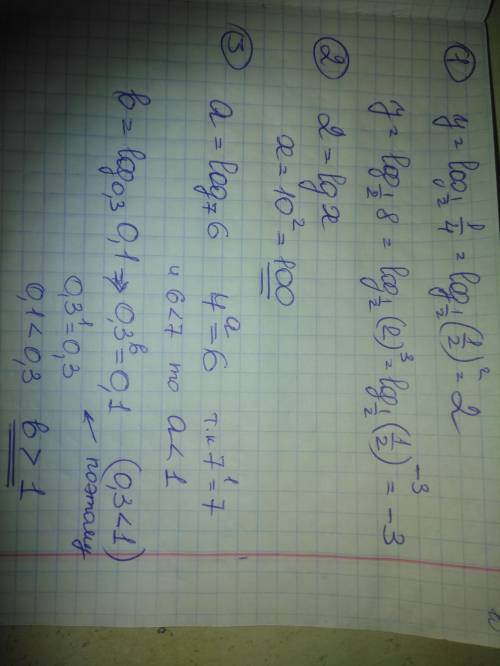 ① y = log_{1/2} 1/4 = log_{1/2} (1/2)² = 2
y = log_{1/2} 8 = log_{1/2} (2)³ = log_{1/2} (1/2)⁻³ = -3
② 2 = lg x
x = 10² = 100
③ a = log₇ 6 7ᵃ = 6 т.к 7¹ = 7
и 6 < 7 то a < 1
b = log_{0,3} 0,1 → 0,3ᵇ = 0,1 (0,3 < 1)
0,3¹ = 0,3 ← поэтому
0,1 < 0,3 b > 1